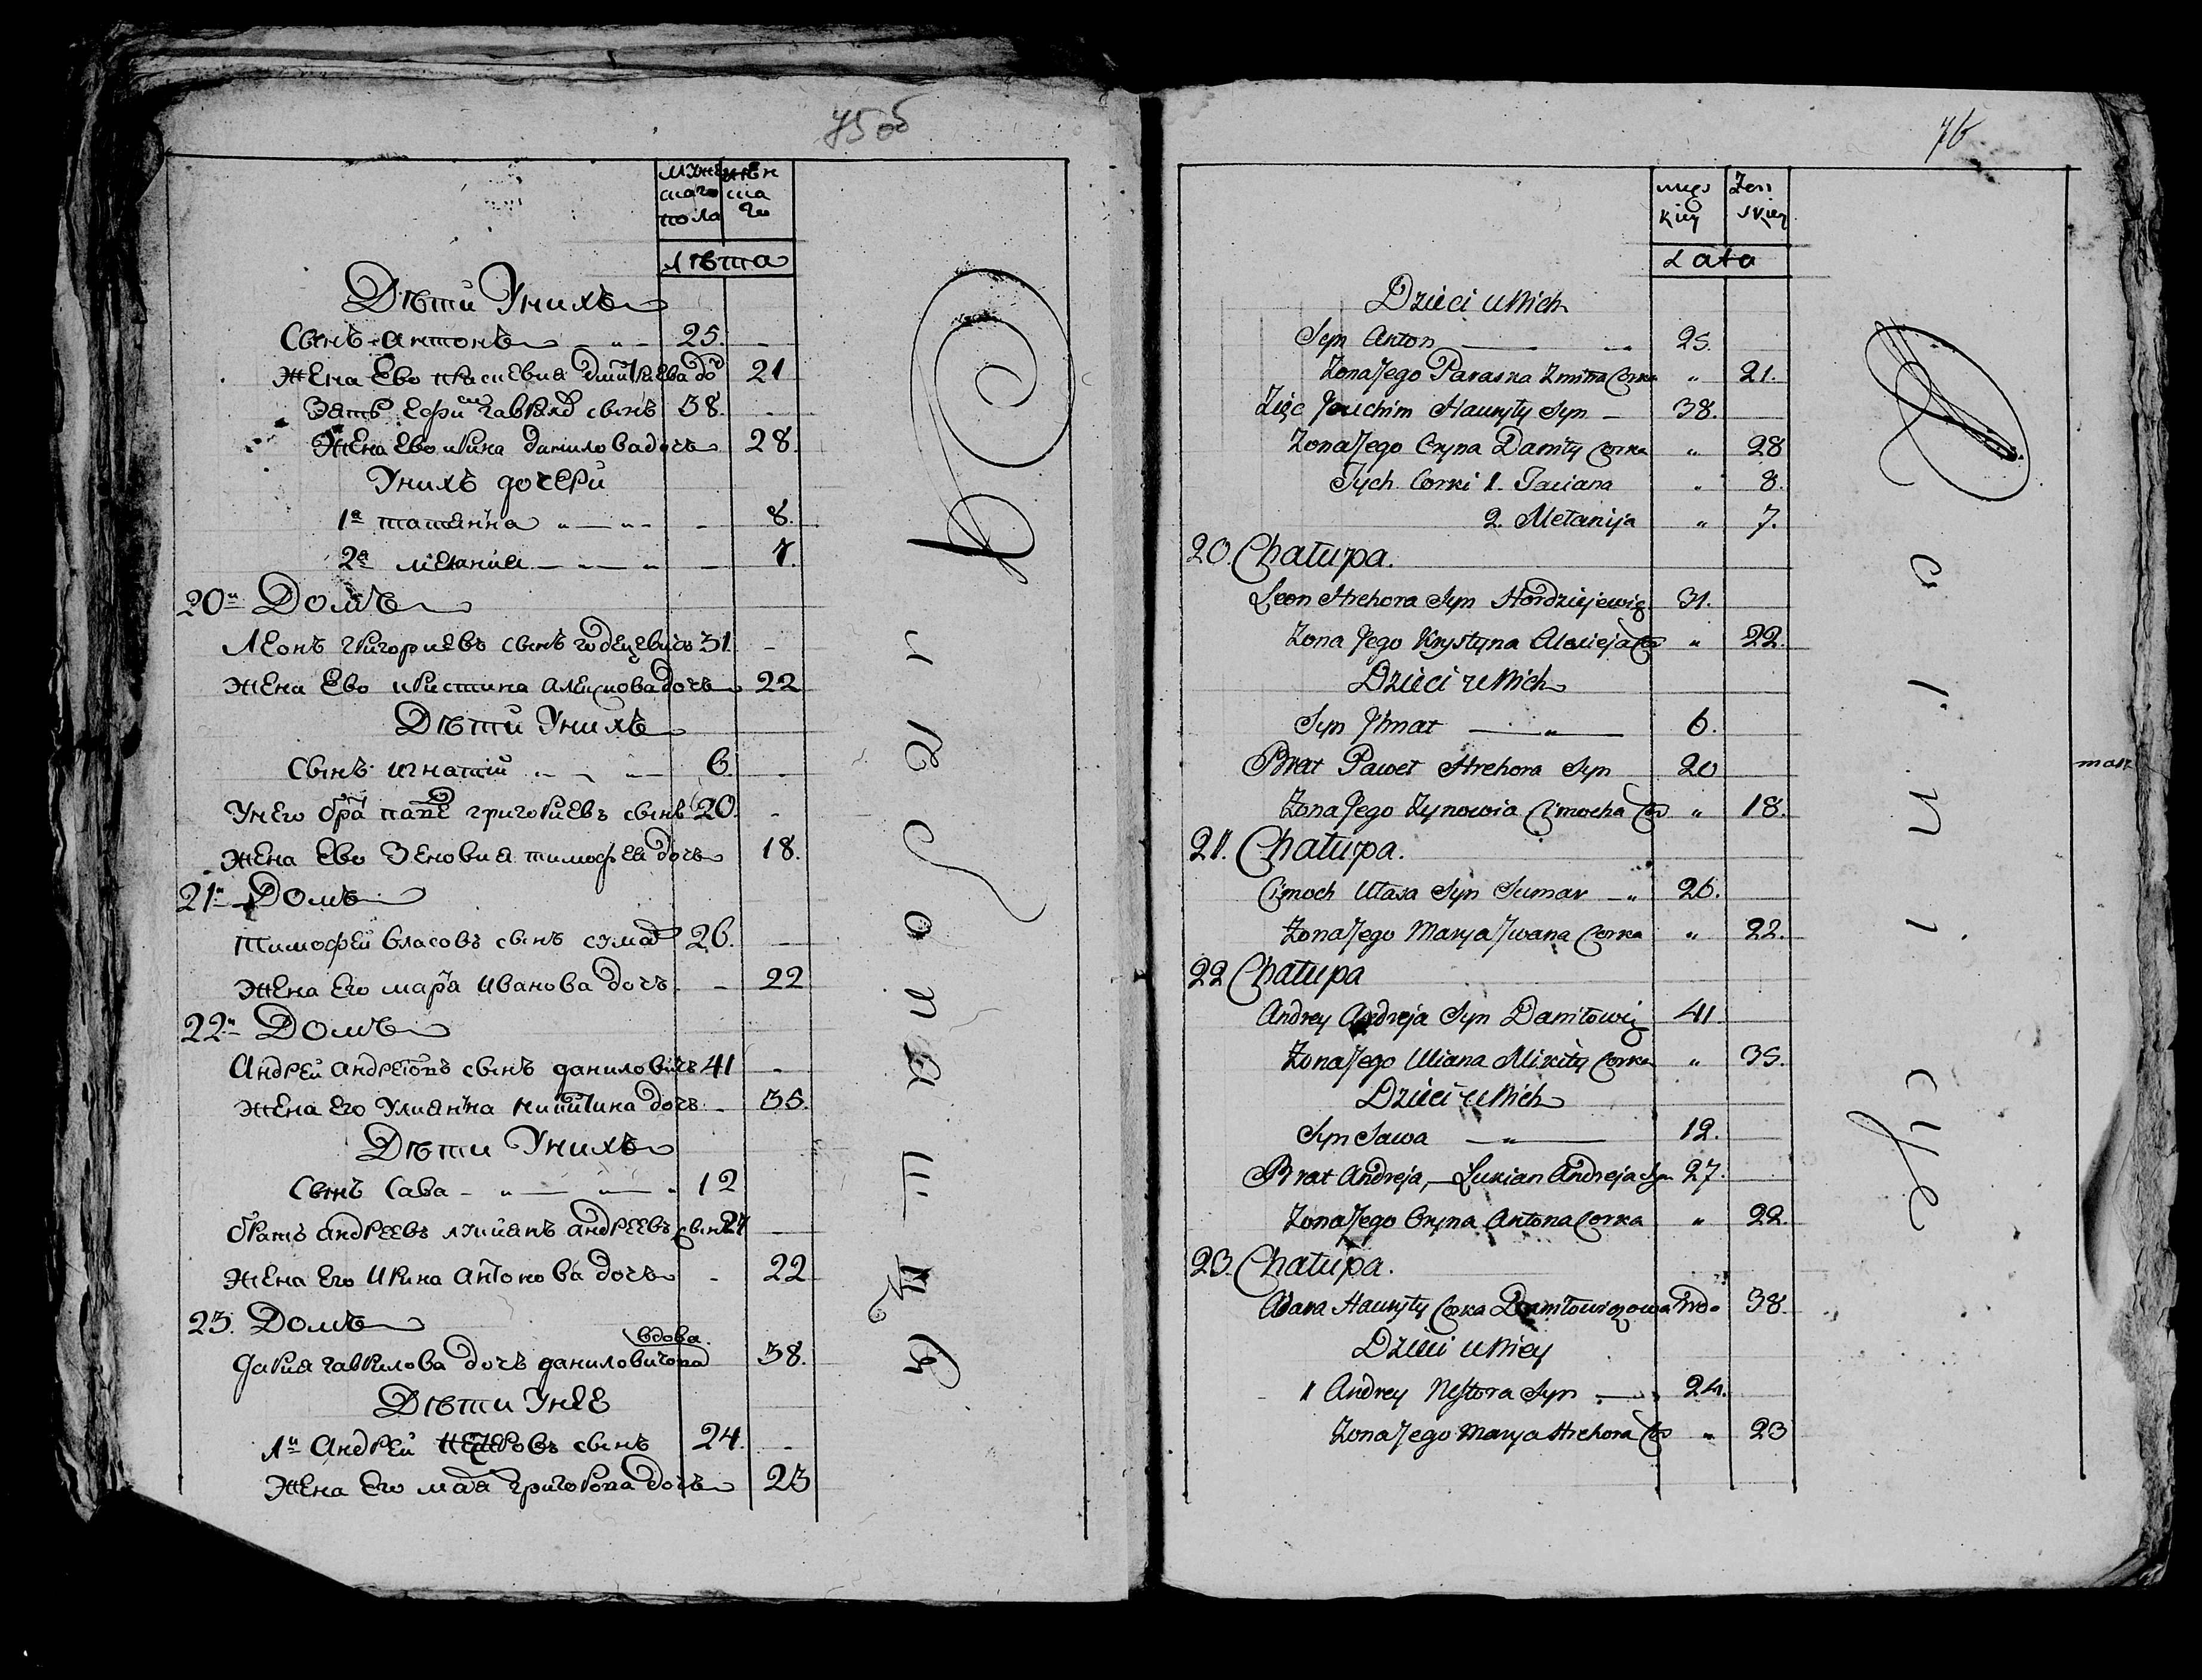 75 об
мужескаго пола
женскаго
лѣта
Дѣти Унихъ
Сынъ антонъ 25.
Жена Ево параскевия дмитриева доч 21
Зять Ефим гаврил сынъ 38.
Жена Ево ирина данилова дочъ 28.
Унихъ дочери
1а татянна 8.
2а мелания 7.
20й Домъ
Леонъ григориевъ сынъ гордецевичъ 31.
Жена Ево кристина алексиова дочъ 22
Дѣти Унихъ
Сынъ игнатий 6.
Унего брат павел григориевъ сынъ 20.
Жена Ево Зеновия тимофея дочъ 18.
21й Домъ
тимофей власовъ сынъ сумар 26.
Жена Его маря иванова дочъ 22
22й Домъ
Андрей андреювъ сынъ даниловичъ 41
Жена Его Улиянна никитина дочъ 35.
Дѣти Унихъ
Сынъ Сава 12
братъ андреевъ лукиянъ андреевъ сынъ 27
Жена Его Ирина Антонова дочъ 22
23. Домъ
вдова.
дария гаврилова дочъ даниловичова 38.
Дѣти Унее
1й Андрей нестеровъ сынъ 24.
Жена Его маря григорова дочъ 23
76
męskiey
Zenskiey
Lata
Dzieci u Nich
Syn Anton 25.
Zona Jego Paraska Zmitra Corka " 21.
Zięc Jouchim Hauryły Syn 38.
Zona Jego Oryna Daniły Corka " 28
Tych Corki 1. Taciana " 8.
2. Mełanija " 7.
20. Chałupa.
Leon Hrehora Syn Hordziejewicz 31.
Zona Jego Krystyna Alexieja Cor " 22.
Dzieci u Nich
Syn Jhnat " 6.
Brat Paweł Hrehora Syn 20
Zona Jego Zynowia Cimocha Cor " 18.
21. Chałupa.
Cimoch Ułasa Syn Sumar " 26.
Zona Jego Marya Jwana Corka " 22.
22 Chałupa
Andrey Andreja Syn Daniłowicz 41.
Zona Jego Uliana Mikity Corka " 35.
Dzieci u Nich
Syn Sawa " 12.
Brat Andreja, Łukian Andreja Syn 27.
Zona Jego Oryna Antona Corka " 22.
23. Chałupa.
Adara Hauryły Corka Daniłowiczowa Wdo 38.
Dzieci u Niey
1 Andrey Nestora Syn 24.
Zona Jego Marya Hrehora Cor " 23